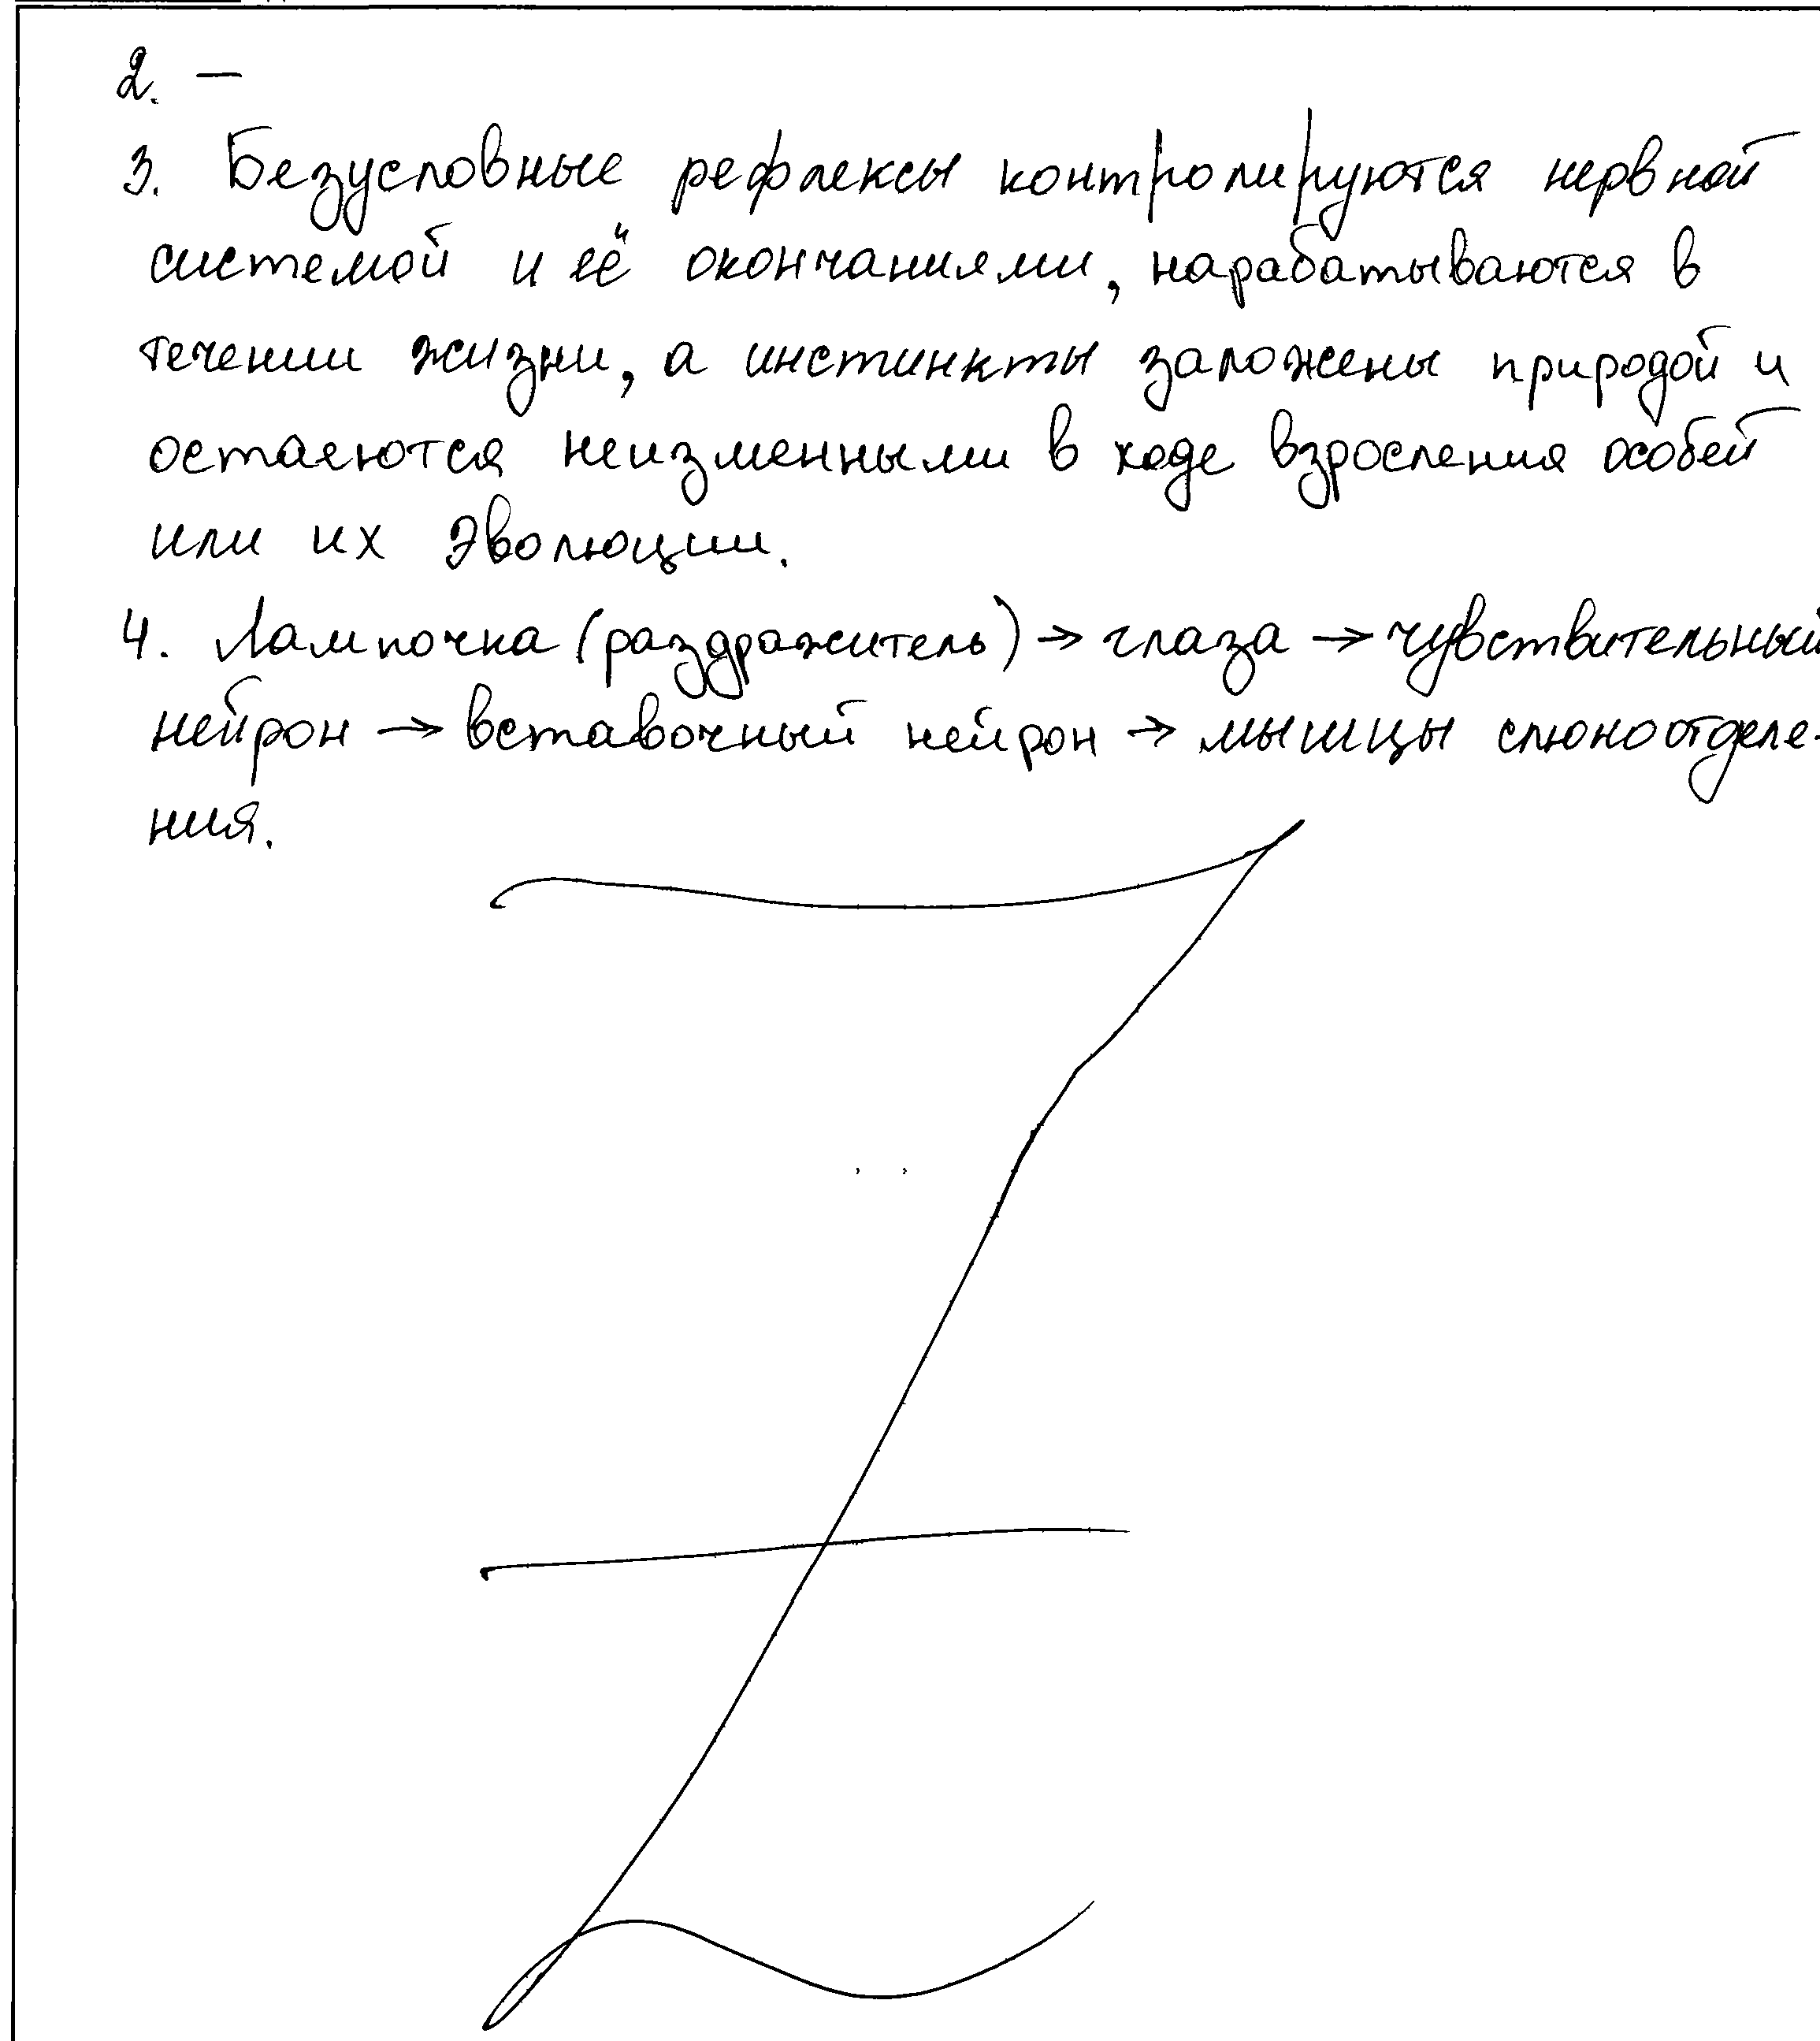 2. —
3. Безусловные рефлексы контролируются нервной
системой и её окончаниями, нарабатываются в
течении жизни, а инстинкты заложены природой и
остаются неизменными в ходе взросления особей
или их эволюции.
4. Лампочка (раздражитель) → глаза → чувствительный
нейрон → вставочный нейрон → мышцы слюноотделе-
ния.